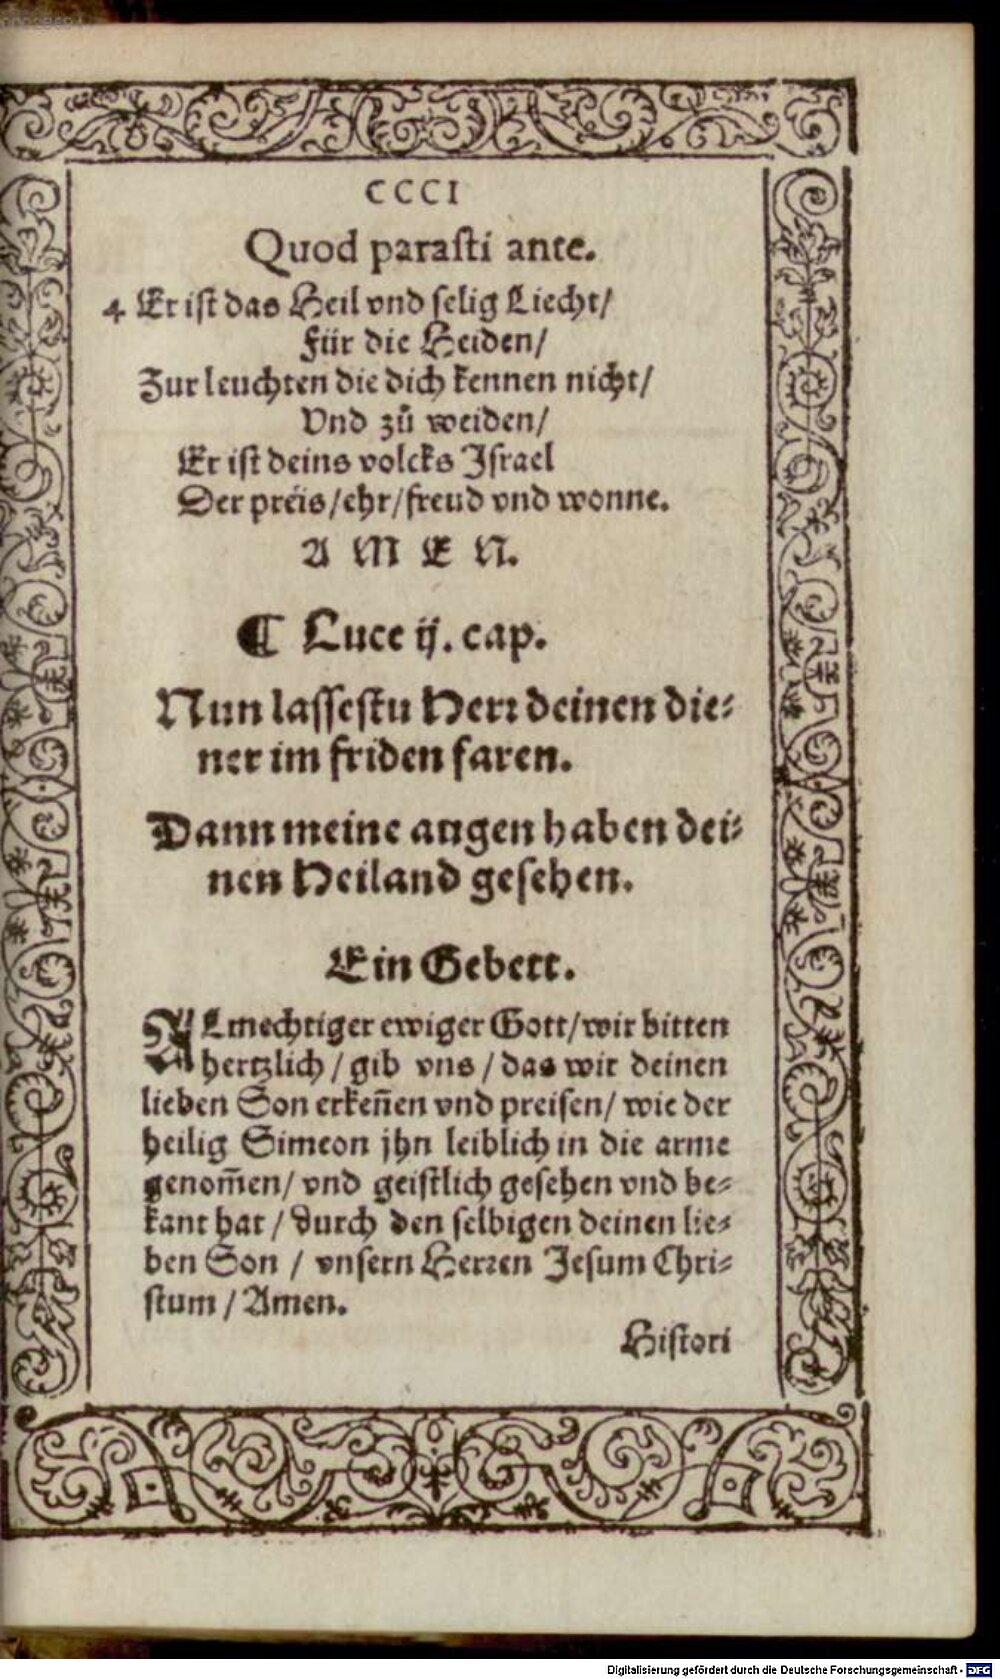 CCCI
Quod parasti ante.
4 Er ist das Heil vnd selig Liecht/
Für die Heiden/
Zur leuchten die dich kennen nicht/
Vnd zů weiden/
Er ist deins volcks Israel
Der preis/ehr/freud vnd wonne.
A M E N.
¶ Luce ij. cap.
Nun lassestu Herr deinen die-
ner im friden faren.
Dann meine augen haben dei-
nen Heiland gesehen.
Ein Gebett.
ALmechtiger ewiger Gott/wir bitten
hertzlich/gib vns/das wir deinen
lieben Son erkeñen vnd preisen/ wie der
heilig Simeon jhn leiblich in die arme
genom̃en/ vnd geistlich gesehen vnd be-
kant hat/durch den selbigen deinen lie-
ben Son / vnsern Herren Jesum Chri-
stum / Amen.
Histori
Digitalisierung gefördert durch die Deutsche Forschungsgemeinschaft - DFG